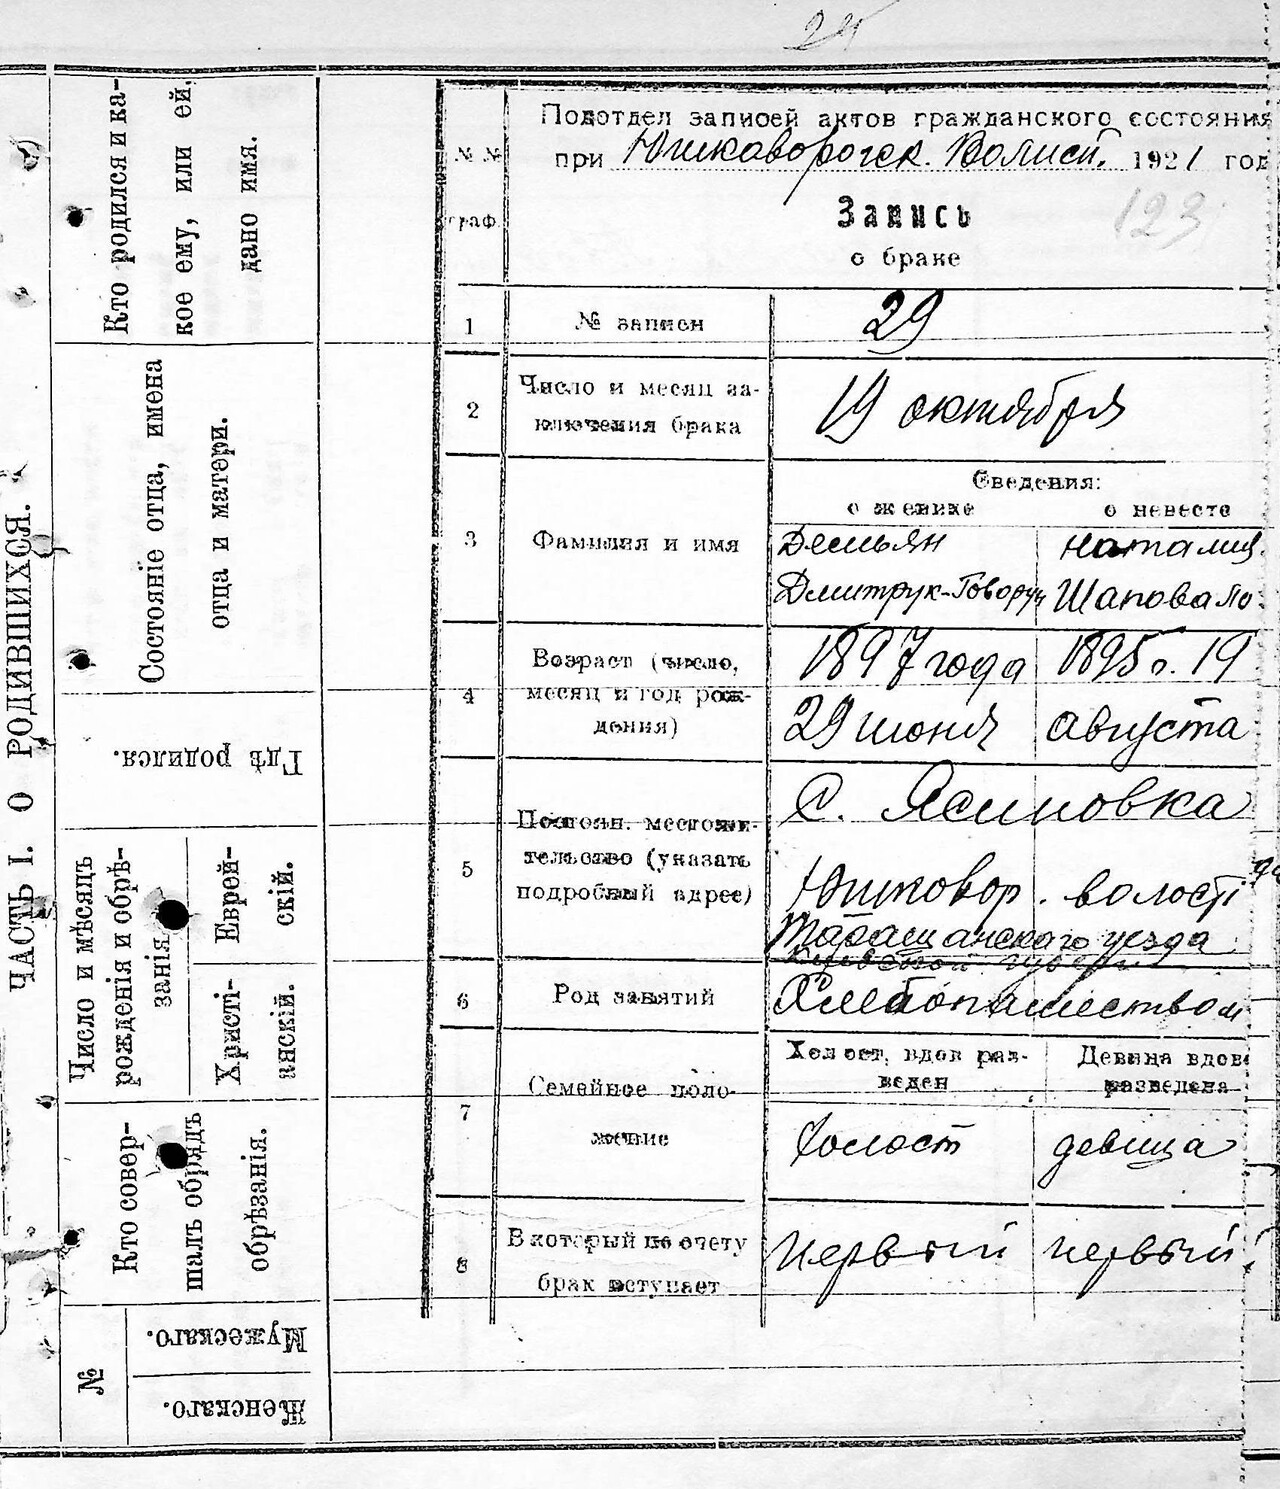 24
ЧАСТЬ I. О РОДИВШИХСЯ.
Кто родился и ка-
кое ему, или ей,
дано имя.
Состояніе отца, имена
отца и матери.
Гдѣ родился.
Число и мѣсяцъ
рожденія и обрѣ-
занія.
Еврей-
скій.
Христі-
анскій.
Кто совер-
шалъ обрядъ
обрѣзанія.
№
Мужескаго.
Женскаго.
№№
граф.
Подотдел записей актов гражданского состояния
при Юшковорогск. Волисп. 1921 год
123
Запись
о браке
1 № записи 29
2 Число и месяц за-
ключения брака 19 октября
Сведения:
о женихе о невесте
3 Фамилия и имя Демьян Наталия
Дмитрук-Говорун Шаповало
4 Возраст (число,
месяц и год рож-
дения)
1897 года 1895 г. 19
29 июня августа
5 Постоян. местожи-
тельство (указать
подробный адрес)
С. Ясиновка
Юшковор. волости
Таращанского уезда
6 Род занятий Хлебопашеством
Холост, вдов раз-
веден
Девица вдова
разведена
7 Семейное поло-
жение
холост девица
8 В который по счету
брак вступает
первый первый